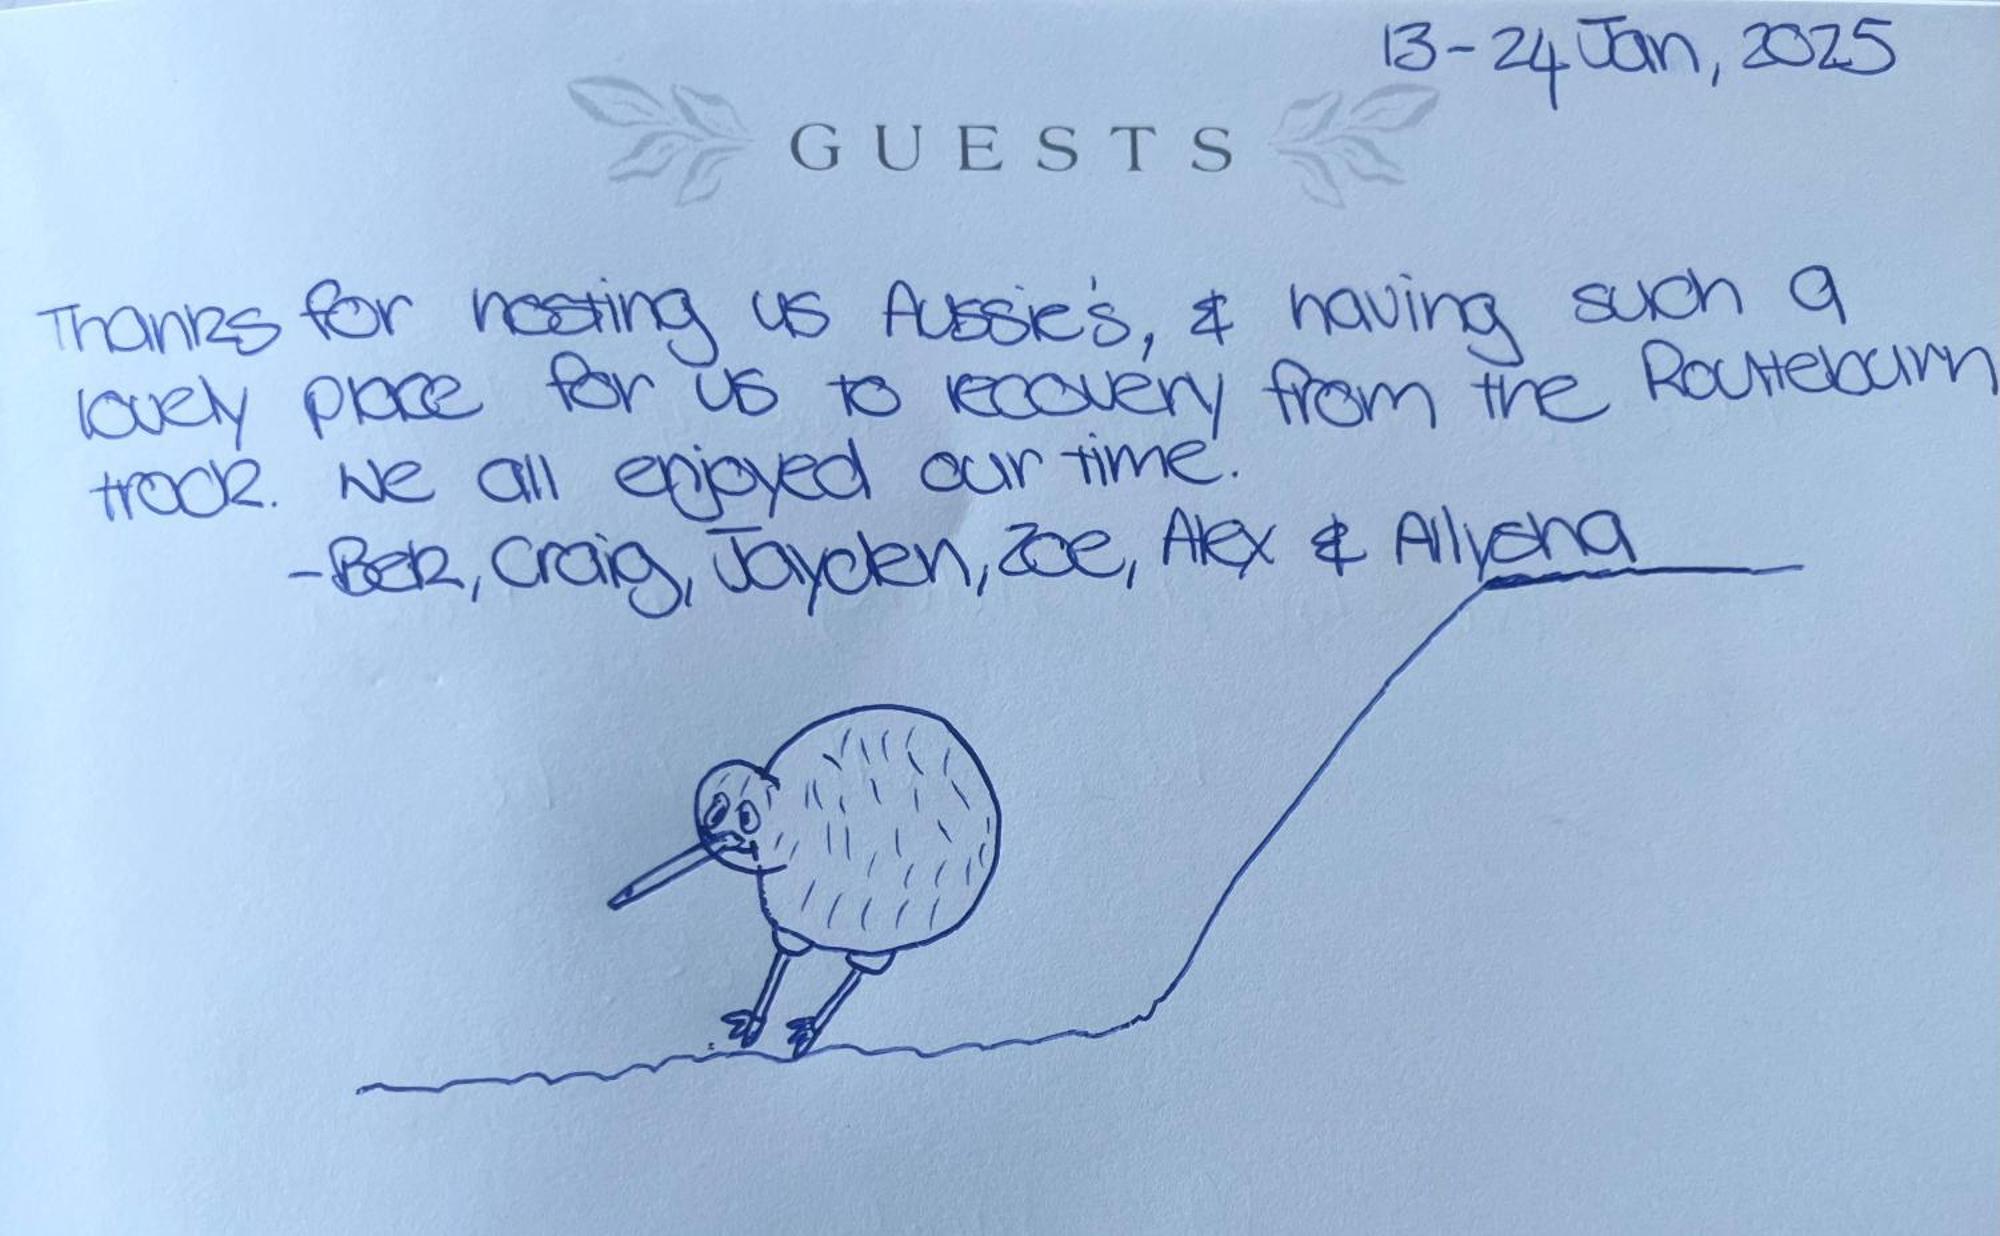 13-24 Jan, 2025
GUESTS
Thanks for hosting us Aussie's, & having such a
lovely place for us to recovery from the Routteburn
track. We all enjoyed our time.
-Bek, Craig, Jayden, Zoe, Alex & Allysha